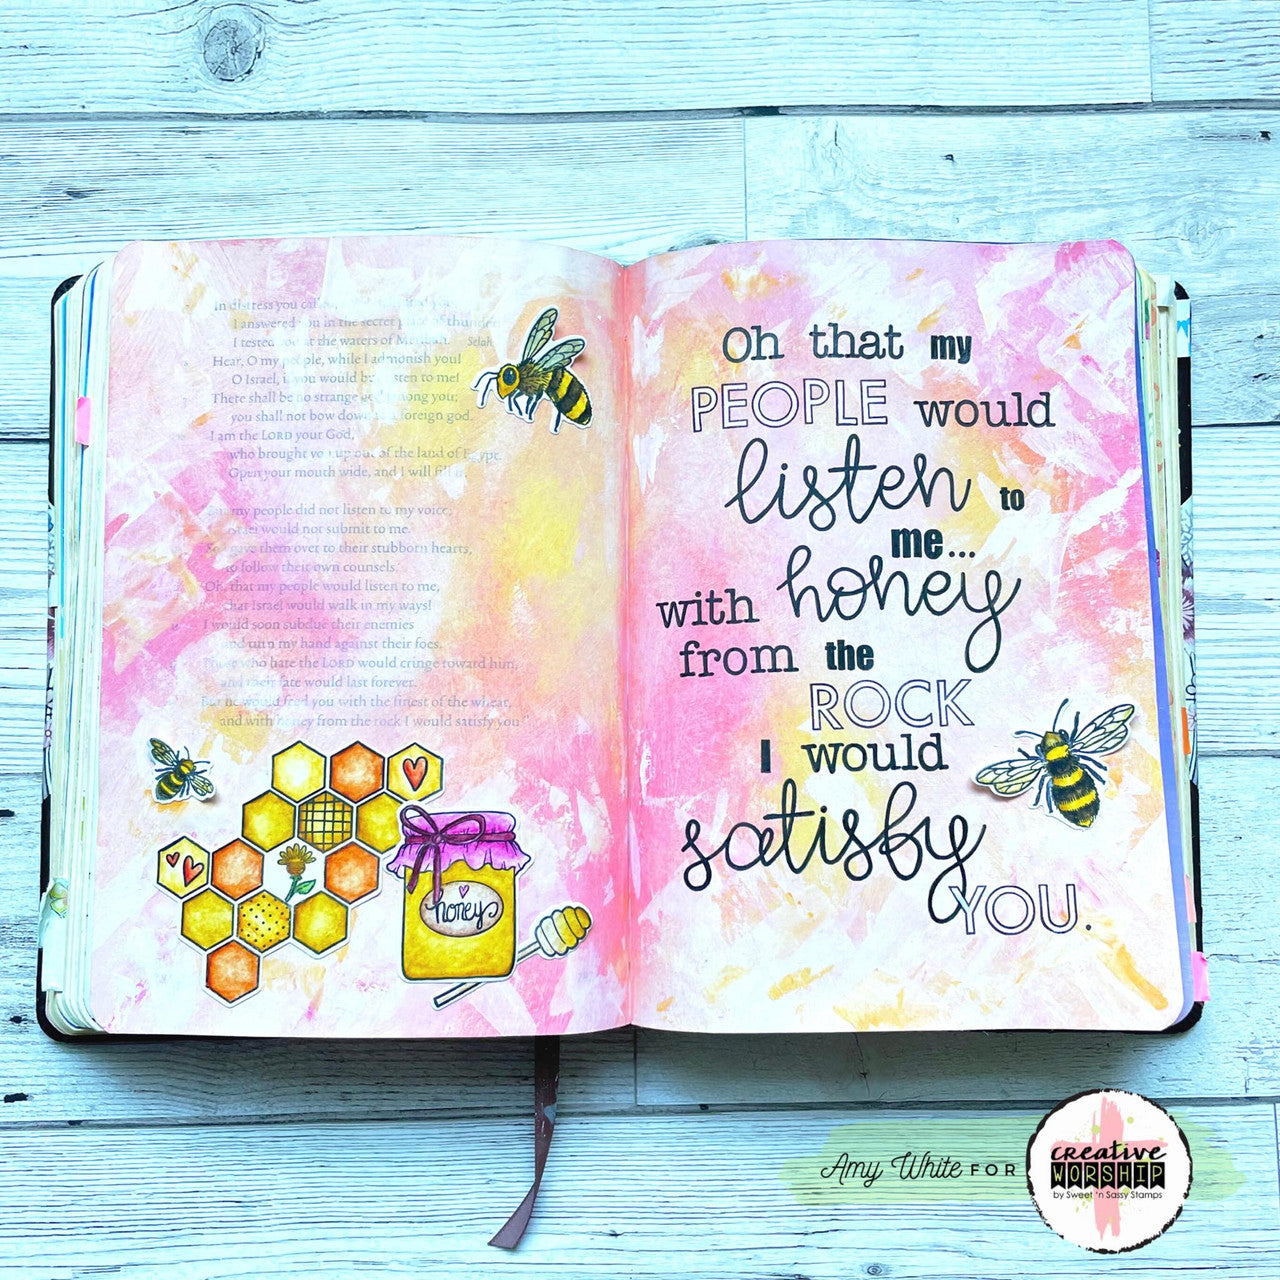 In distress you
I answered you in the secret place of thunder
I tested you at the waters of Meribah. Selah
Hear, O my people, while I admonish you!
O Israel, if you would but listen to me!
There shall be no strange god among you;
you shall not bow down to a foreign god.
I am the LORD your God,
who brought you up out of the land of Egypt.
Open your mouth wide, and I will fill it.
my people did not listen to my voice;
Israel would not submit to me.
So I gave them over to their stubborn hearts,
to follow their own counsels.
Oh, that my people would listen to me,
that Israel would walk in my ways!
I would soon subdue their enemies
and turn my hand against their foes.
Those who hate the LORD would cringe toward him,
and their fate would last forever.
But he would feed you with the finest of the wheat,
and with honey from the rock I would satisfy you
honey
Oh that my
PEOPLE would
listen to
me...
with honey
from the
ROCK
I would
satisfy
YOU.
Amy White FOR
creative
WORSHIP
by Sweet 'n Sassy Stamps